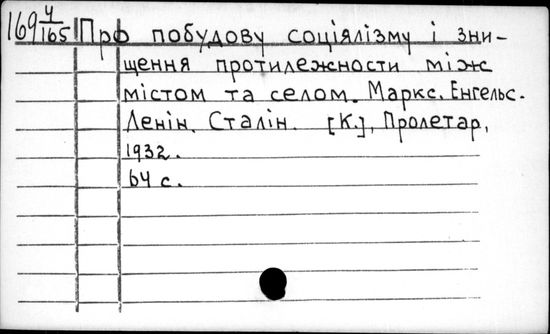 169 4/165 Про побудову соціялізму і зни-
щення протилежности між
містом та селом. Маркс. Енгельс.
Ленін. Сталін. [К.], Пролетар,
1932.
64 с.